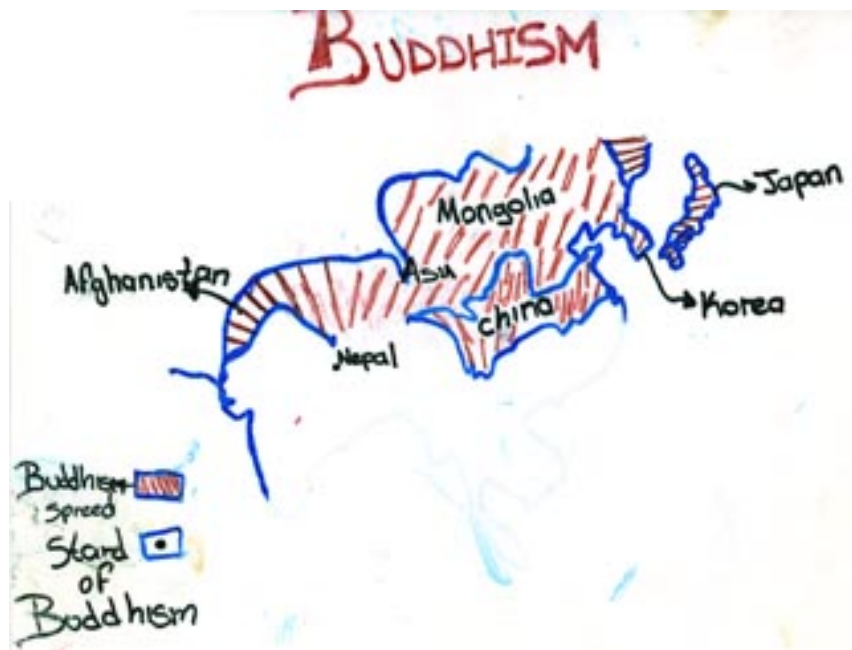 BUDDHISM
Mongolia
Japan
Afghanistan
Asu
China
Korea
Nepal
Buddhism
Spreed
Stard
of
Buddhism